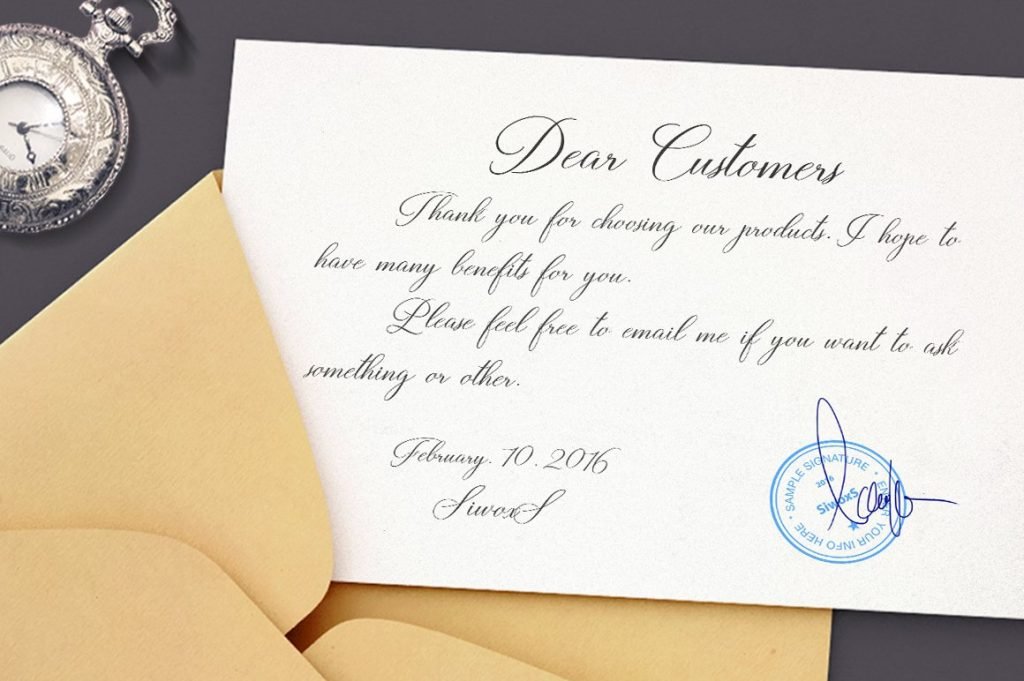 Dear Customers
Thank you for choosing our products. I hope to
have many benefits for you.
Please feel free to email me if you want to ask
something or other.
February. 10. 2016
SiwoxS
SAMPLE SIGNATURE
2016
SiwoxS
YOUR INFO HERE